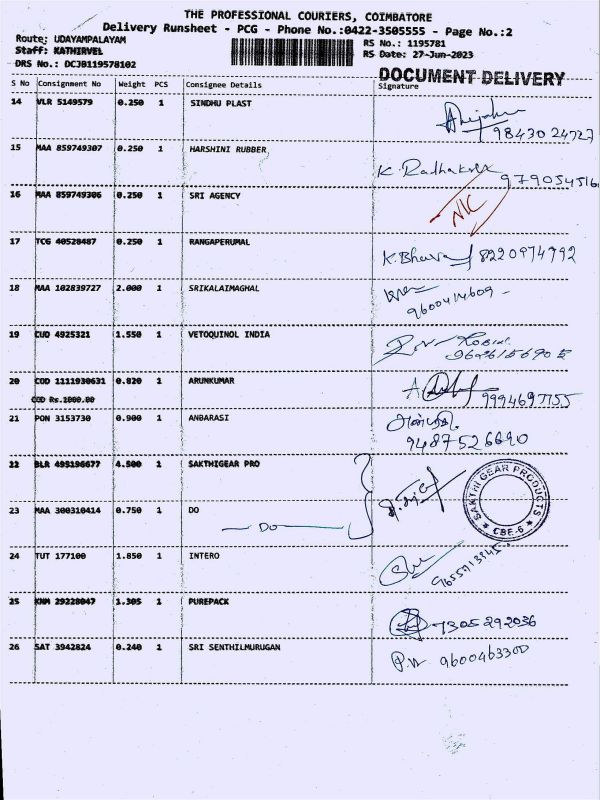 THE PROFESSIONAL COURIERS, COIMBATORE
Delivery Runsheet - PCG - Phone No.:0422-3505555 - Page No.:2
Route: UDAYAMPALAYAM
RS No.: 1195781
Staff: KATHIRVEL
RS Date: 27-Jun-2023
DRS No.: DCJB119578102
DOCUMENT DELIVERY
S No Consignment No Weight PCS Consignee Details Signature
14 VLR 5149579 0.250 1 SINDHU PLAST
98430 24727
15 MAA 859749307 0.250 1 HARSHINI RUBBER
K. Radhakr
979054516
16 MAA 859749306 0.250 1 SRI AGENCY
N/C
17 TCG 40528487 0.250 1 RANGAPERUMAL
K. Bhava 8220974792
18 MAA 102839727 2.000 1 SRIKALAIMAGHAL
9600414609 -
19 CUD 4925321 1.550 1 VETOQUINOL INDIA
Robin.
9626156905
20 COD 1111930631 0.820 1 ARUNKUMAR
COD Rs.1000.00
9994697155
21 PON 3153730 0.900 1 ANBARASI
அன்பரசி.
9487526690
22 BLR 495196677 4.500 1 SAKTHIGEAR PRO
SAKTHI GEAR PRODUCTS
★ CBE-6 ★
23 MAA 300310414 0.750 1 DO
Do
24 TUT 177100 1.850 1 INTERO
9655713945
25 KNM 29228047 1.305 1 PUREPACK
7305292036
26 SAT 3942824 0.240 1 SRI SENTHILMURUGAN
P.N 9600463300